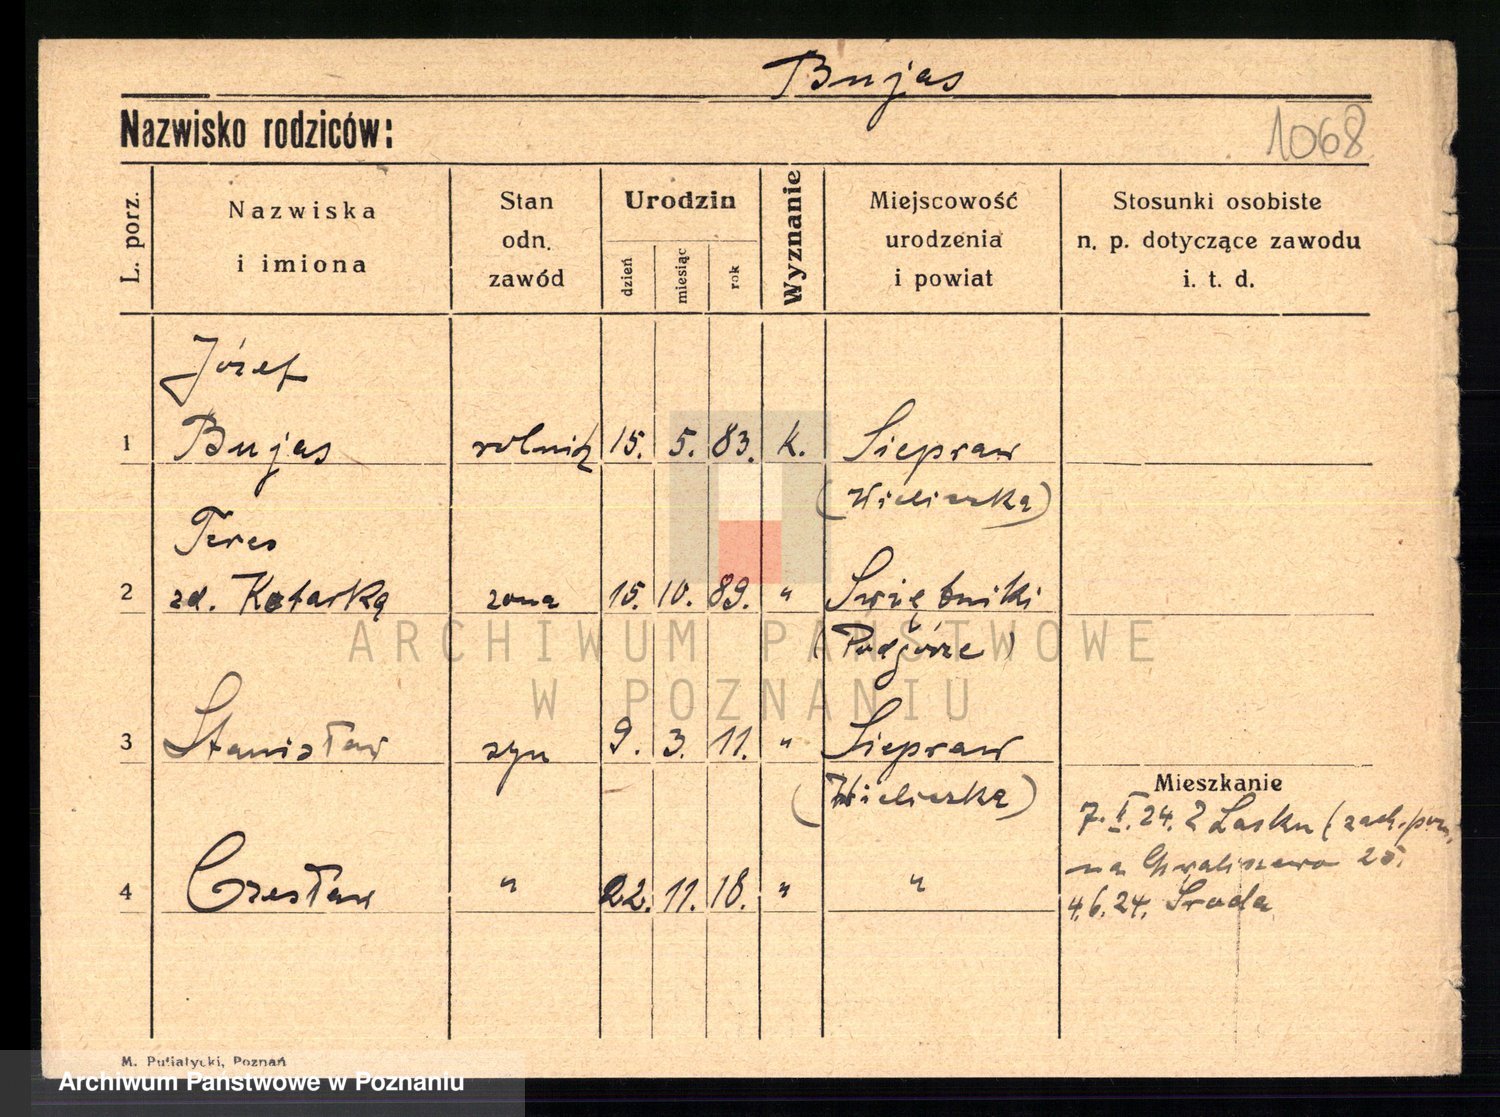 Bujas
Nazwisko rodziców:
1068
L. porz.
Nazwiska
i imiona
Stan
odn.
zawód
Urodzin
dzień
miesiąc
rok
Wyznanie
Miejscowość
urodzenia
i powiat
Stosunki osobiste
n. p. dotyczące zawodu
i. t. d.
Józef
1 Bujas rolnik 15. 5. 83. k. Siepraw
(Wieliczka)
Teres
2 zd. Kotarką żona 15. 10. 89. " Świętniki
(Podgórze)
3 Stanisław syn 9. 3. 11. " Siepraw
(Wieliczka)
Mieszkanie
7. II. 24. z Lasku (zach. pozn.
na Chwaliszewo 25.
4 Czesław " 22. 11. 18. " "
4.6.24. Środa
ARCHIWUM PAŃSTWOWE
W POZNANIU
M. Putiatycki, Poznań
Archiwum Państwowe w Poznaniu